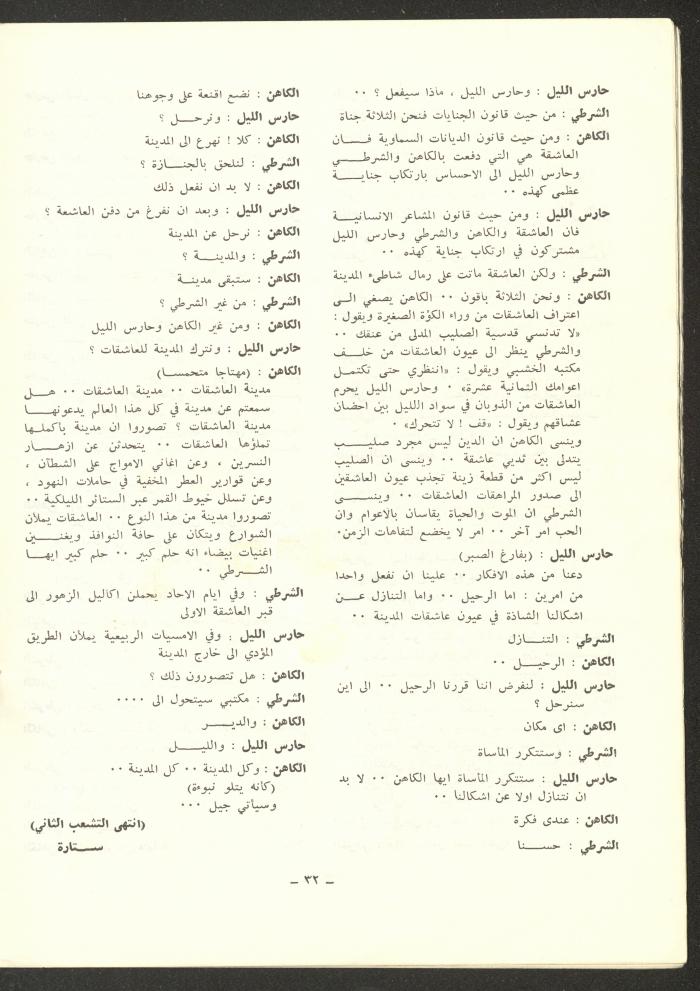 حارس الليل : وحارس الليل ، ماذا سيفعل ؟ ۰۰
الشرطي : من حيث قانون الجنايات فنحن الثلاثة جناة
الكاهن : ومن حيث قانون الديانات السماوية فــان
العاشقة هي التي دفعت بالكاهن والشرطــي
وحارس الليل الى الاحساس بارتكاب جنايـــة
عظمى كهذه ۰۰
حارس الليل : ومن حيث قانون المشاعر الانسانيــة
فان العاشقة والكاهن والشرطي وحارس الليل
مشتركون في ارتكاب جناية كهذه ۰۰
الشرطي : ولكن العاشقة ماتت على رمال شاطىء المدينة
الكاهن : ونحن الثلاثة باقون ۰۰ الكاهن يصغي الـى
اعتراف العاشقات من وراء الكوة الصغيرة ويقول :
«لا تدنسي قدسية الصليب المدلى من عنقك ۰۰
والشرطي ينظر الى عيون العاشقات من خلــف
مكتبه الخشبي ويقول : «انتظري حتى تكتمــل
اعوامك الثمانية عشرة» ۰ وحارس الليل يحرم
العاشقات من الذوبان في سواد الليل بين احضان
عشاقهم ويقول : «قف ! لا تتحرك» ۰
وينسى الكاهن ان الدين ليس مجرد صليـــب
يتدلى بين ثديي عاشقة ۰۰ وينسى ان الصليب
ليس اكثر من قطعة زينة تجذب عيون العاشقين
الى صدور المراهقات العاشقات ۰۰ وينســـى
الشرطي ان الموت والحياة يقاسان بالاعوام وان
الحب امر آخر ۰۰ امر لا يخضع لتفاهات الزمن۰
حارس الليل : (بفارغ الصبر)
دعنا من هذه الافكار ۰۰ علينا ان نفعل واحدا
من امرين : اما الرحيل ۰۰ واما التنازل عــن
اشكالنا الشاذة في عيون عاشقات المدينة ۰۰
الشرطي : التنـــازل
الكاهن : الرحيـــل ۰۰
حارس الليل : لنفرض اننا قررنا الرحيل ۰۰ الى اين
سنرحل ؟
الكاهن : اى مكان
الشرطي : وستتكرر الماساة
حارس الليل : ستتكرر الماساة ايها الكاهن ۰۰ لا بد
ان نتنازل اولا عن اشكالنا ۰۰
الكاهن : عندى فكرة
الشرطي : حســـنا
الكاهن : نضع اقنعة على وجوهنا
حارس الليل : ونرحـــل ؟
الكاهن : كلا ! نهرع الى المدينة
الشرطي : لنلحق بالجنـــازة ؟
الكاهن : لا بد ان نفعل ذلك
حارس الليل : وبعد ان نفرغ من دفن العاشعة ؟
الكاهن : نرحل عن المدينة
الشرطي : والمدينـــة ؟
الكاهن : ستبقى مدينــة
الشرطي : من غير الشرطي ؟
الكاهن : ومن غير الكاهن وحارس الليل
حارس الليل : ونترك المدينة للعاشقات ؟
الكاهن : (مهتاجا متحمســا)
مدينة العاشقات ۰۰ مدينة العاشقات ۰۰ هــل
سمعتم عن مدينة في كل هذا العالم يدعونهــا
مدينة العاشقات ؟ تصوروا ان مدينة باكملـها
تملؤها العاشقات ۰۰ يتحدثن عن ازهـــار
النسرين ، وعن اغاني الامواج على الشطآن ،
وعن قوارير العطر المخفية في حاملات النهود ،
وعن تسلل خيوط القمر عبر الستائر الليلكية ۰۰
تصوروا مدينة من هذا النوع ۰۰ العاشقات يملآن
الشوارع ويتكان على حافة النوافذ ويغنـــين
اغنيات بيضاء انه حلم كبير ۰۰ حلم كبير ايهـا
الشـــرطي ۰۰
الشرطي : وفي ايام الاحاد يحملن اكاليل الزهور الى
قبر العاشقة الاولى
حارس الليل : وفي الامسيات الربيعية يملآن الطريق
المؤدي الى خارج المدينة
الكاهن : هل تتصورون ذلك ؟
الشرطي : مكتبي سيتحول الى ۰۰۰۰
الكاهن : والديـــر
حارس الليل : والليـــل
الكاهن : وكل المدينة ۰۰ كل المدينة ۰۰
(كانه يتلو نبوءة)
وسياتي جيل ۰۰۰
(انتهى التشعب الثاني)
ســـتارة
– ٣٢ –